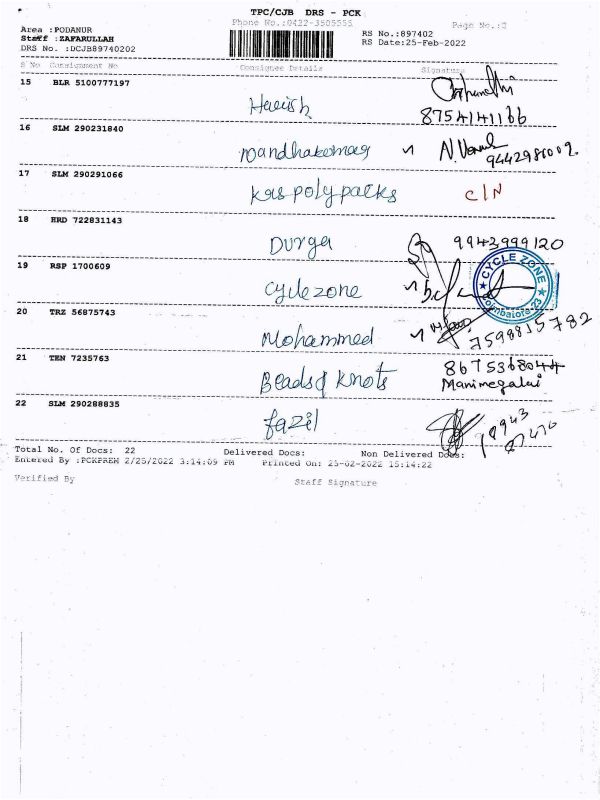 TPC/CJB DRS - PCK
Phone No.:0422-3505555
Area :PODANUR
Staff :ZAFARULLAH
DRS No. :DCJB89740202
RS No.:897402
RS Date:25-Feb-2022
Page No.:2
S No Consignment No Consignee Details Signature
15 BLR 5100777197
Harish
8754141166
16 SLM 290231840
Nandhakumar
17 SLM 290291066
KRS poly packs C/N
18 HRD 722831143
Durga 9943999120
19 RSP 1700609
Cycle zone
CYCLE ZONE
Coimbatore-23
20 TRZ 56875743
Mohammed 7598815782
21 TEN 7235763
Beads & Knots 8675368044
Manimegalai
22 SLM 290288835
fazil
Total No. Of Docs: 22 Delivered Docs: Non Delivered Docs:
Entered By :PCKPREM 2/25/2022 3:14:09 PM Printed On: 25-02-2022 15:14:22
Verified By Staff Signature